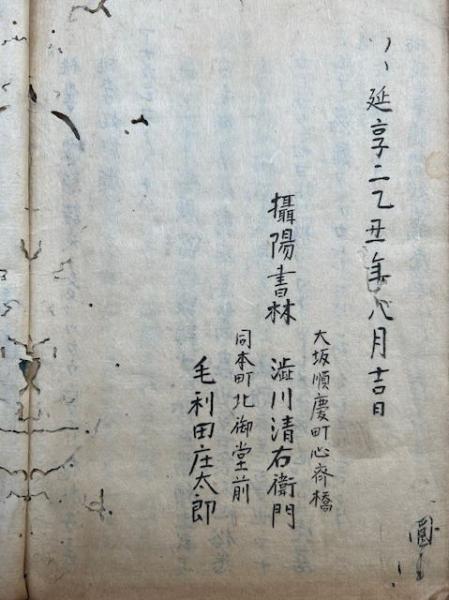 延享二乙丑年 月吉日
攝陽書林
大坂順慶町心斉橋
澁川清右衛門
同本町北御堂前
毛利田庄太郎